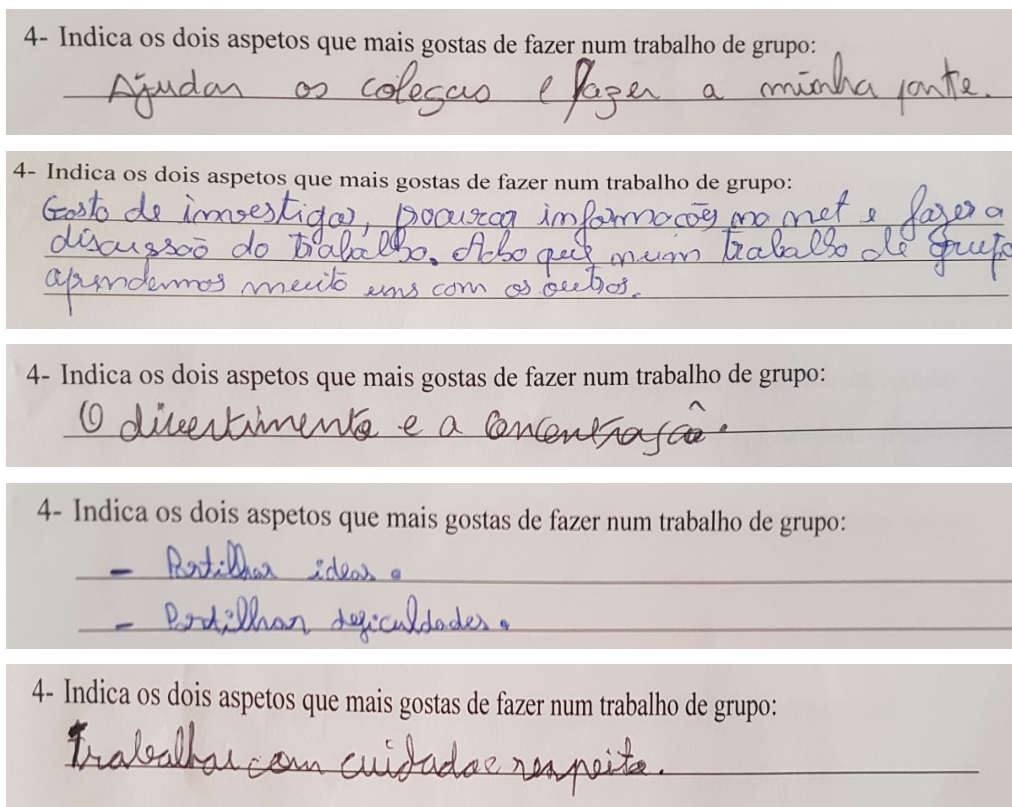 4- Indica os dois aspetos que mais gostas de fazer num trabalho de grupo:
Ajudar os colegas e fazer a minha parte.
4- Indica os dois aspetos que mais gostas de fazer num trabalho de grupo:
Gosto de investigar, procurar informacões na net e fazer a
discussão do trabalho. Acho que num trabalho de grupo
aprendemos muito uns com os outros.
4- Indica os dois aspetos que mais gostas de fazer num trabalho de grupo:
O divertimento e a concentração.
4- Indica os dois aspetos que mais gostas de fazer num trabalho de grupo:
- Partilhar ideas.
- Partilhar deficuldades.
4- Indica os dois aspetos que mais gostas de fazer num trabalho de grupo:
Trabalhar com cuidado e respeito.